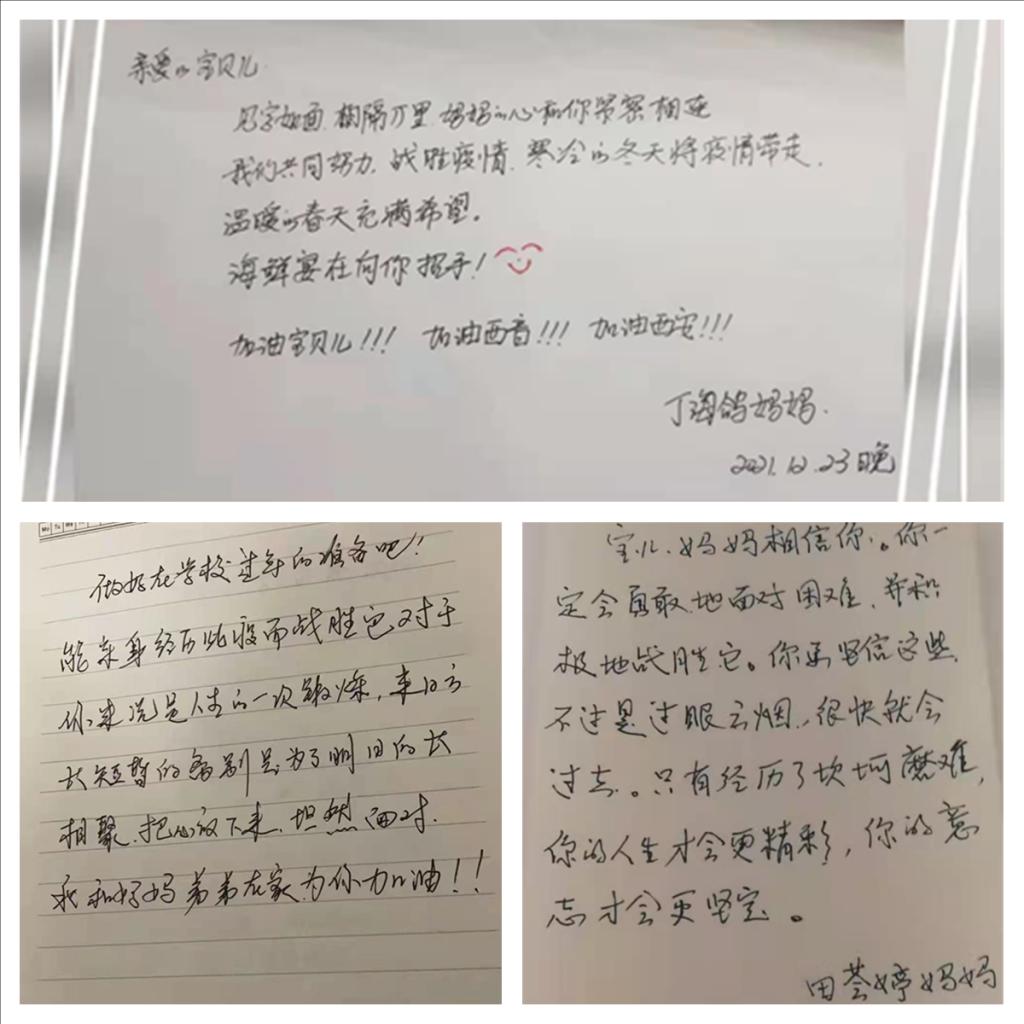 亲爱的宝贝儿
见字如面.相隔万里.妈妈的心和你紧密相连
我们共同努力.战胜疫情.寒冷的冬天将疫情带走.
温暖的春天充满希望。
海鲜宴在向你招手!
加油宝贝儿!!! 加油西音!!! 加油西安!!!
丁海鸽妈妈.
2021.12.23晚
做好在学校过年的准备吧!
能亲身经历此疫而战胜它对于
你来说是人生的一次锻炼,来日方
长短暂的离别是为了明日的长
相聚.把心放下来.坦然面对.
我和妈妈弟弟在家为你加油!!
宝儿.妈妈相信你.。你一
定会勇敢地面对困难,并积
极地战胜它。你要坚信这些
不过是过眼云烟,很快就会
过去。只有经历了坎坷磨难,
你的人生才会更精彩,你的意
志才会更坚定。
田荟婷妈妈